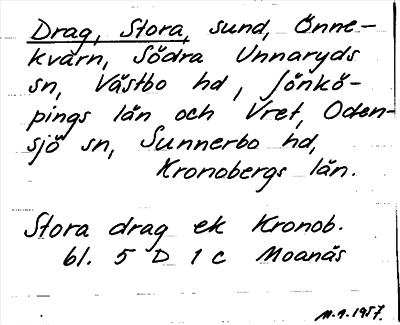 Drag, Stora, sund, Önne-
kvarn, Södra Unnaryds
sn, Västbo hd, Jönkö-
pings län och Vret, Oden-
sjö sn, Sunnerbo hd,
Kronobergs län.
Stora drag ek Kronob.
bl. 5 D 1 c Moanäs
11.9.1957.